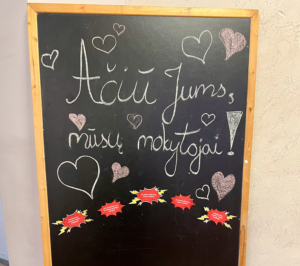 Ačiū Jums,
mūsų mokytojai!